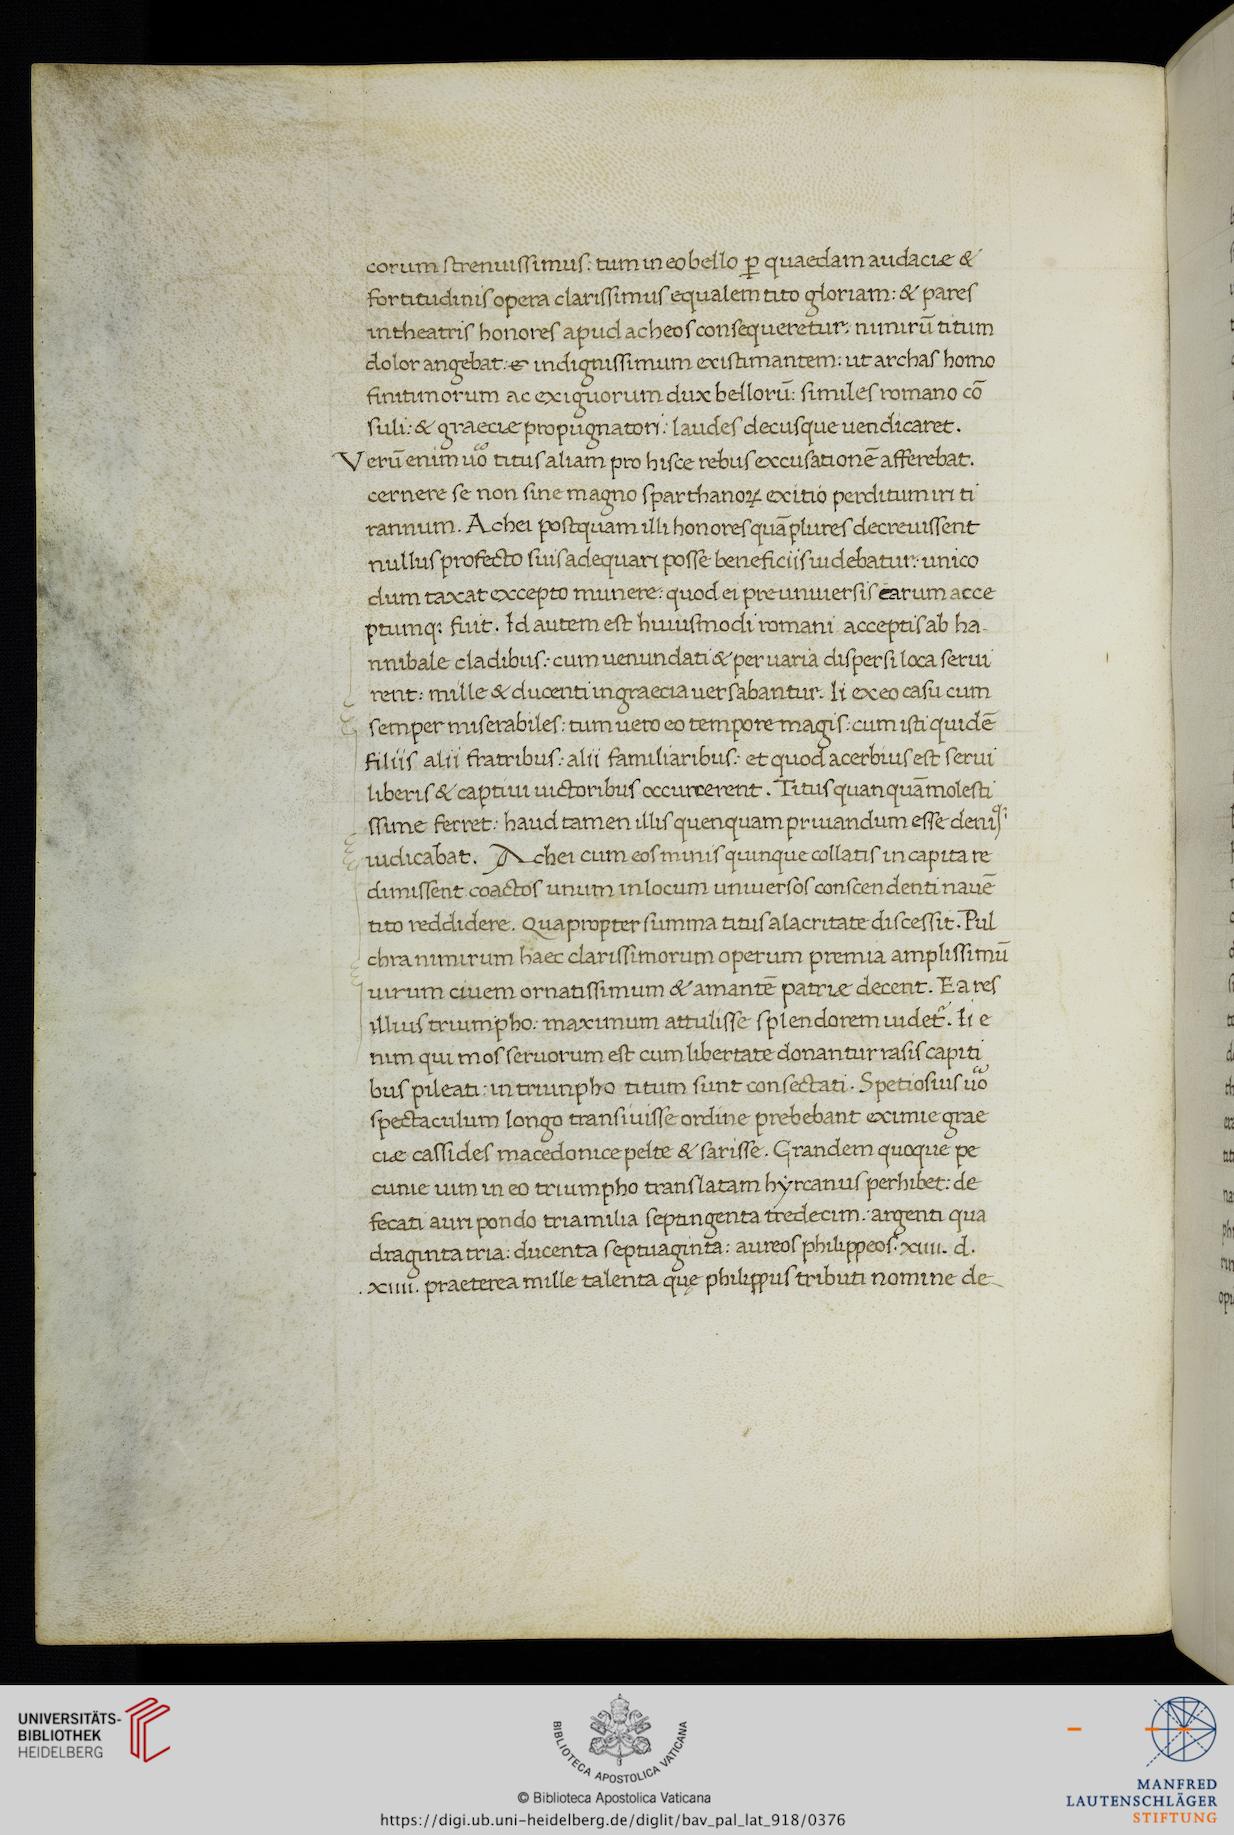 corum strenuissimus: tum in eo bello ꝑ quaedam audaciæ &
fortitudinis opera clarissimus equalem tito gloriam: & pares
in theatris honores apud acheos consequeretur: nimirū titum
dolor angebat: & indignissimum existimantem: ut archas homo
finitimorum ac exiguorum dux bellorū: similes romano cō
suli: & graeciæ propugnatori: laudes decusque uendicaret.
Verū enim uo titus aliam pro hisce rebus excusationē afferebat.
cernere se non sine magno sparthanoꝝ exitio perditum iri ti
rannum. Achei postquam illi honores quāplures decreuissent
nullus profecto suis adequari posse beneficiis uidebatur: unico
dum taxat excepto munere: quod ei pre uniuersis earum acce
ptumq; fuit. Id autem est huiusmodi romani acceptis ab ha-
nnibale cladibus: cum uenundati & per uaria dispersi loca serui
rent: mille & ducenti in graecia uersabantur. Ii ex eo casu cum
semper miserabiles: tum uero eo tempore magis: cum isti quidē
filiis alii fratribus: alii familiaribus: et quod acerbius est serui
liberis & captiui uictoribus occurrerent. Titus quanquā molesti
ssime ferret: haud tamen illis quenquam priuandum esse deniq;
iudicabat. Achei cum eos minis quinque collatis in capita re
dimissent coactos unum in locum uniuersos conscendenti nauē
tito reddidere. Quapropter summa titus alacritate discessit. Pul
chra nimirum haec clarissimorum operum premia amplissimū
uirum ciuem ornatissimum & amantē patriæ decent. Ea res
illius triumpho: maximum attulisse splendorem uidet̃. Ii e
nim qui mos seruorum est cum libertate donantur rasis capiti
bus pileati: in triunpho titum sunt consectati. Spetiosius uo
spectaculum longo transiuisse ordine prebebant eximie grae
ciæ cassides macedonice pelte & sarisse. Grandem quoque pe
cunie uim in eo triumpho translatam hyrcanus perhibet: de
fecati auri pondo tria milia septingenta tredecim: argenti qua
draginta tria: ducenta septuaginta: aureos philippeos: xiiii. d.
.xiiii. praeterea mille talenta quę philippus tributi nomine de
UNIVERSITÄTS-
BIBLIOTHEK
HEIDELBERG
BIBLIOTECA APOSTOLICA VATICANA
© Biblioteca Apostolica Vaticana
https://digi.ub.uni-heidelberg.de/diglit/bav_pal_lat_918/0376
MANFRED
LAUTENSCHLÄGER
STIFTUNG